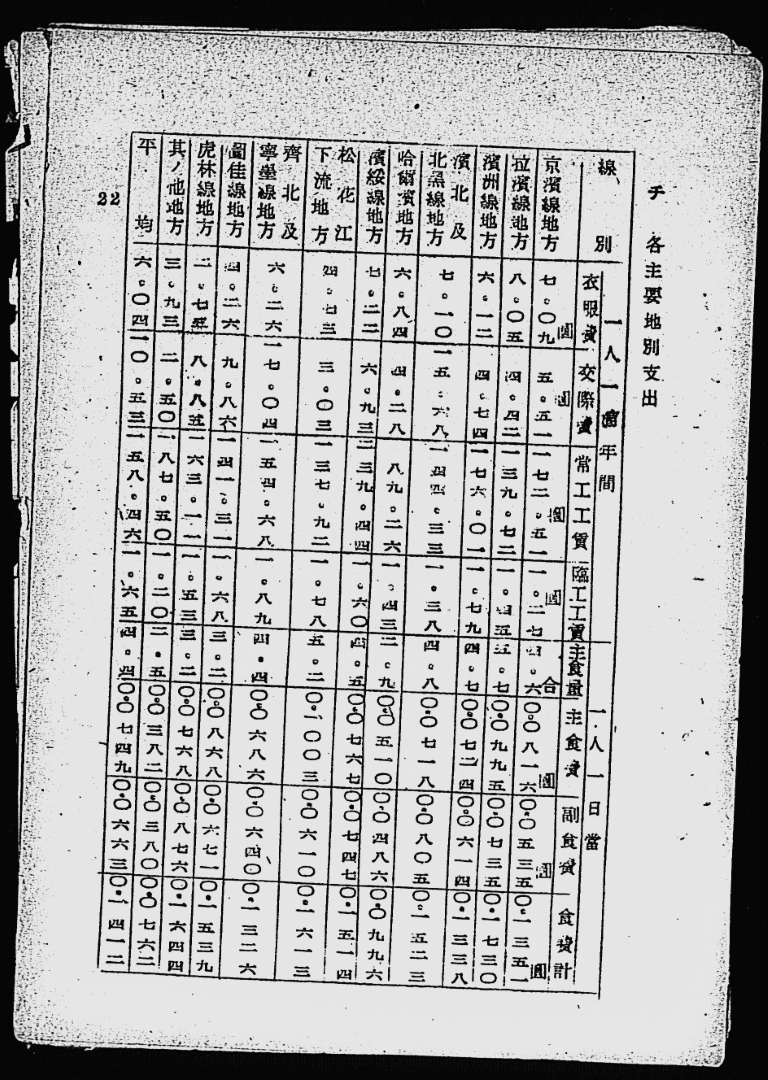 チ 各主要地別支出
一人一箇年間 一人一日當
線別 衣服費 交際費 常工工賃 臨工工賃 主食量 主食費 副食費 食費計
京濱線地方 七・〇九圓 五・五一圓 一七二・五一圓 一・二七圓 四・六合 〇・〇八一六圓 〇・〇五三五圓 〇・一三五一圓
拉濱線地方 八・〇五 四・四二 一三九・七二 一・四五 五・七 〇・〇九九五 〇・〇七三五 〇・一七三〇
濱洲線地方 六・一二 四・七四 一七六・〇一 一・七九 四・七 〇・〇七二四 〇・〇六一四 〇・一三三八
濱北及
北黑線地方 七・一〇 一五・六八 一四四・三三 一・三八 四・八 〇・〇七一八 〇・〇八〇五 〇・一五二三
哈爾濱地方 六・八四 四・二八 八九・二六 一・四三 二・九 〇・〇五一〇 〇・〇四八六 〇・〇九九六
濱綏線地方 七・二二 六・九三 二三九・四四 一・六〇 四・五 〇・〇七六七 〇・〇七四七 〇・一五一四
松花江
下流地方 四・七三 三・〇三 一三七・九二 一・七八 五・二 〇・一〇〇三 〇・〇六一〇 〇・一六一三
齊北及
寧墨線地方 六・二六 一七・〇四 一五四・六八 一・八九 四・四 〇・〇六八六 〇・〇六四〇 〇・一三二六
圖佳線地方 四・二六 九・八六 一四一・三一 一・六八 三・二 〇・〇八六八 〇・〇六七一 〇・一五三九
虎林線地方 二・七五 八・八五 一六三・一一 一・五三 三・二 〇・〇七六八 〇・〇八七六 〇・一六四四
其ノ他地方 三・九三 二・五〇 一八七・五〇 一・二〇 二・五 〇・〇三八二 〇・〇三八〇 〇・〇七六二
平均 六・〇四 一〇・五三 一五八・四六 一・六五 四・四 〇・〇七四九 〇・〇六六三 〇・一四一二
22